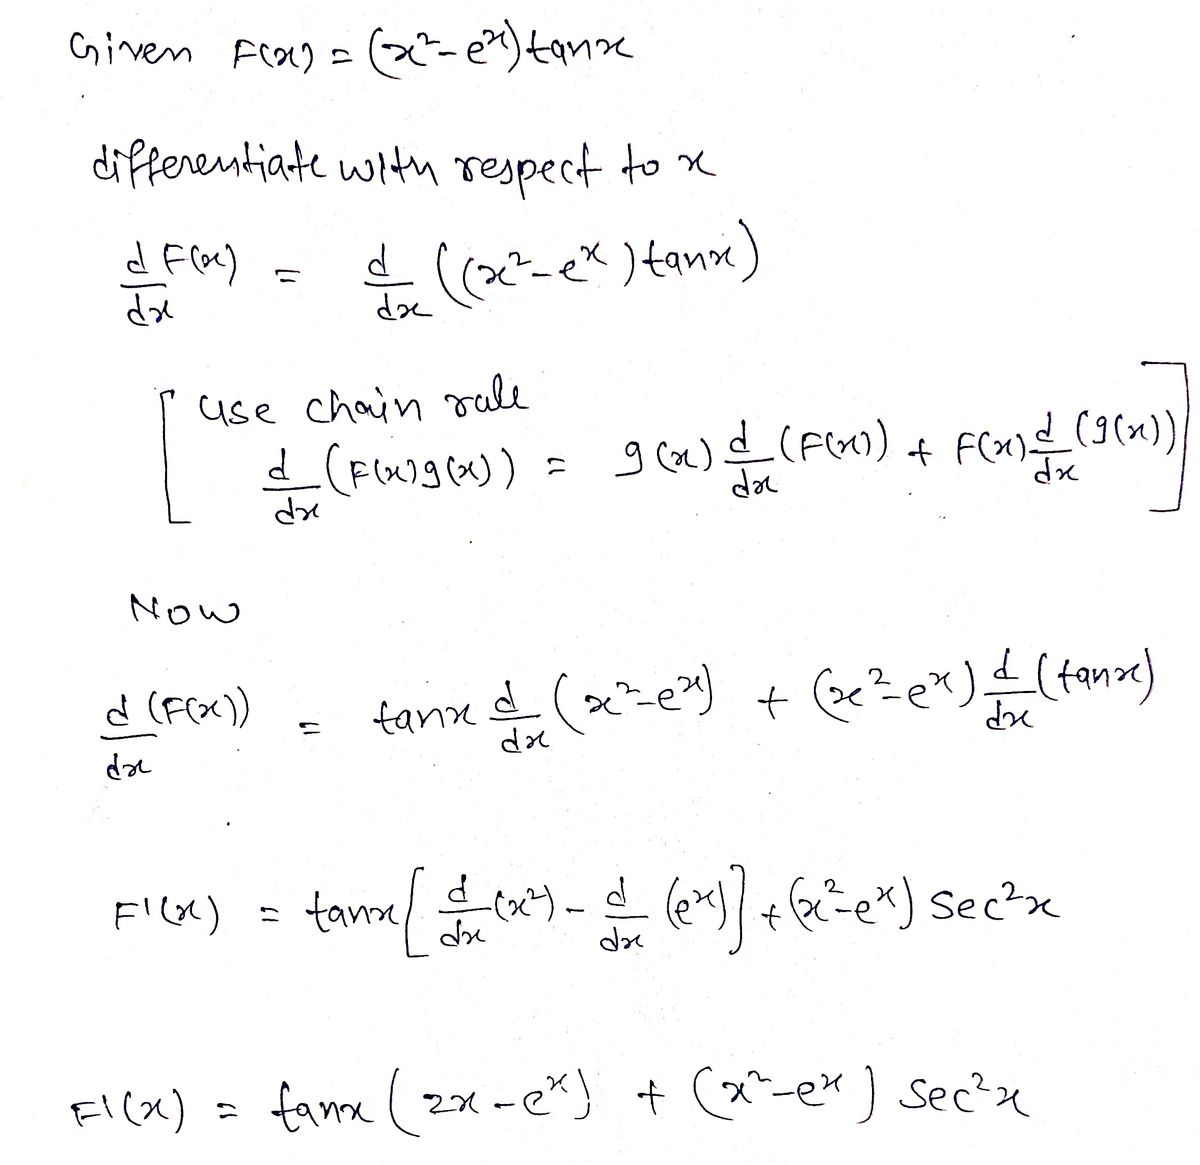 Given F(x) = (x²-eˣ)tanx
differentiate with respect to x
d F(x)/dx = d/dx ((x²-eˣ)tanx)
[use chain rule
d/dx (F(x)g(x)) = g(x) d/dx (F(x)) + F(x) d/dx (g(x))]
Now
d (F(x))/dx = tanx d/dx (x²-eˣ) + (x²-eˣ) d/dx (tanx)
F'(x) = tanx [d/dx (x²) - d/dx (eˣ)] + (x²-eˣ) Sec²x
F'(x) = tanx (2x-eˣ) + (x²-eˣ) Sec²x